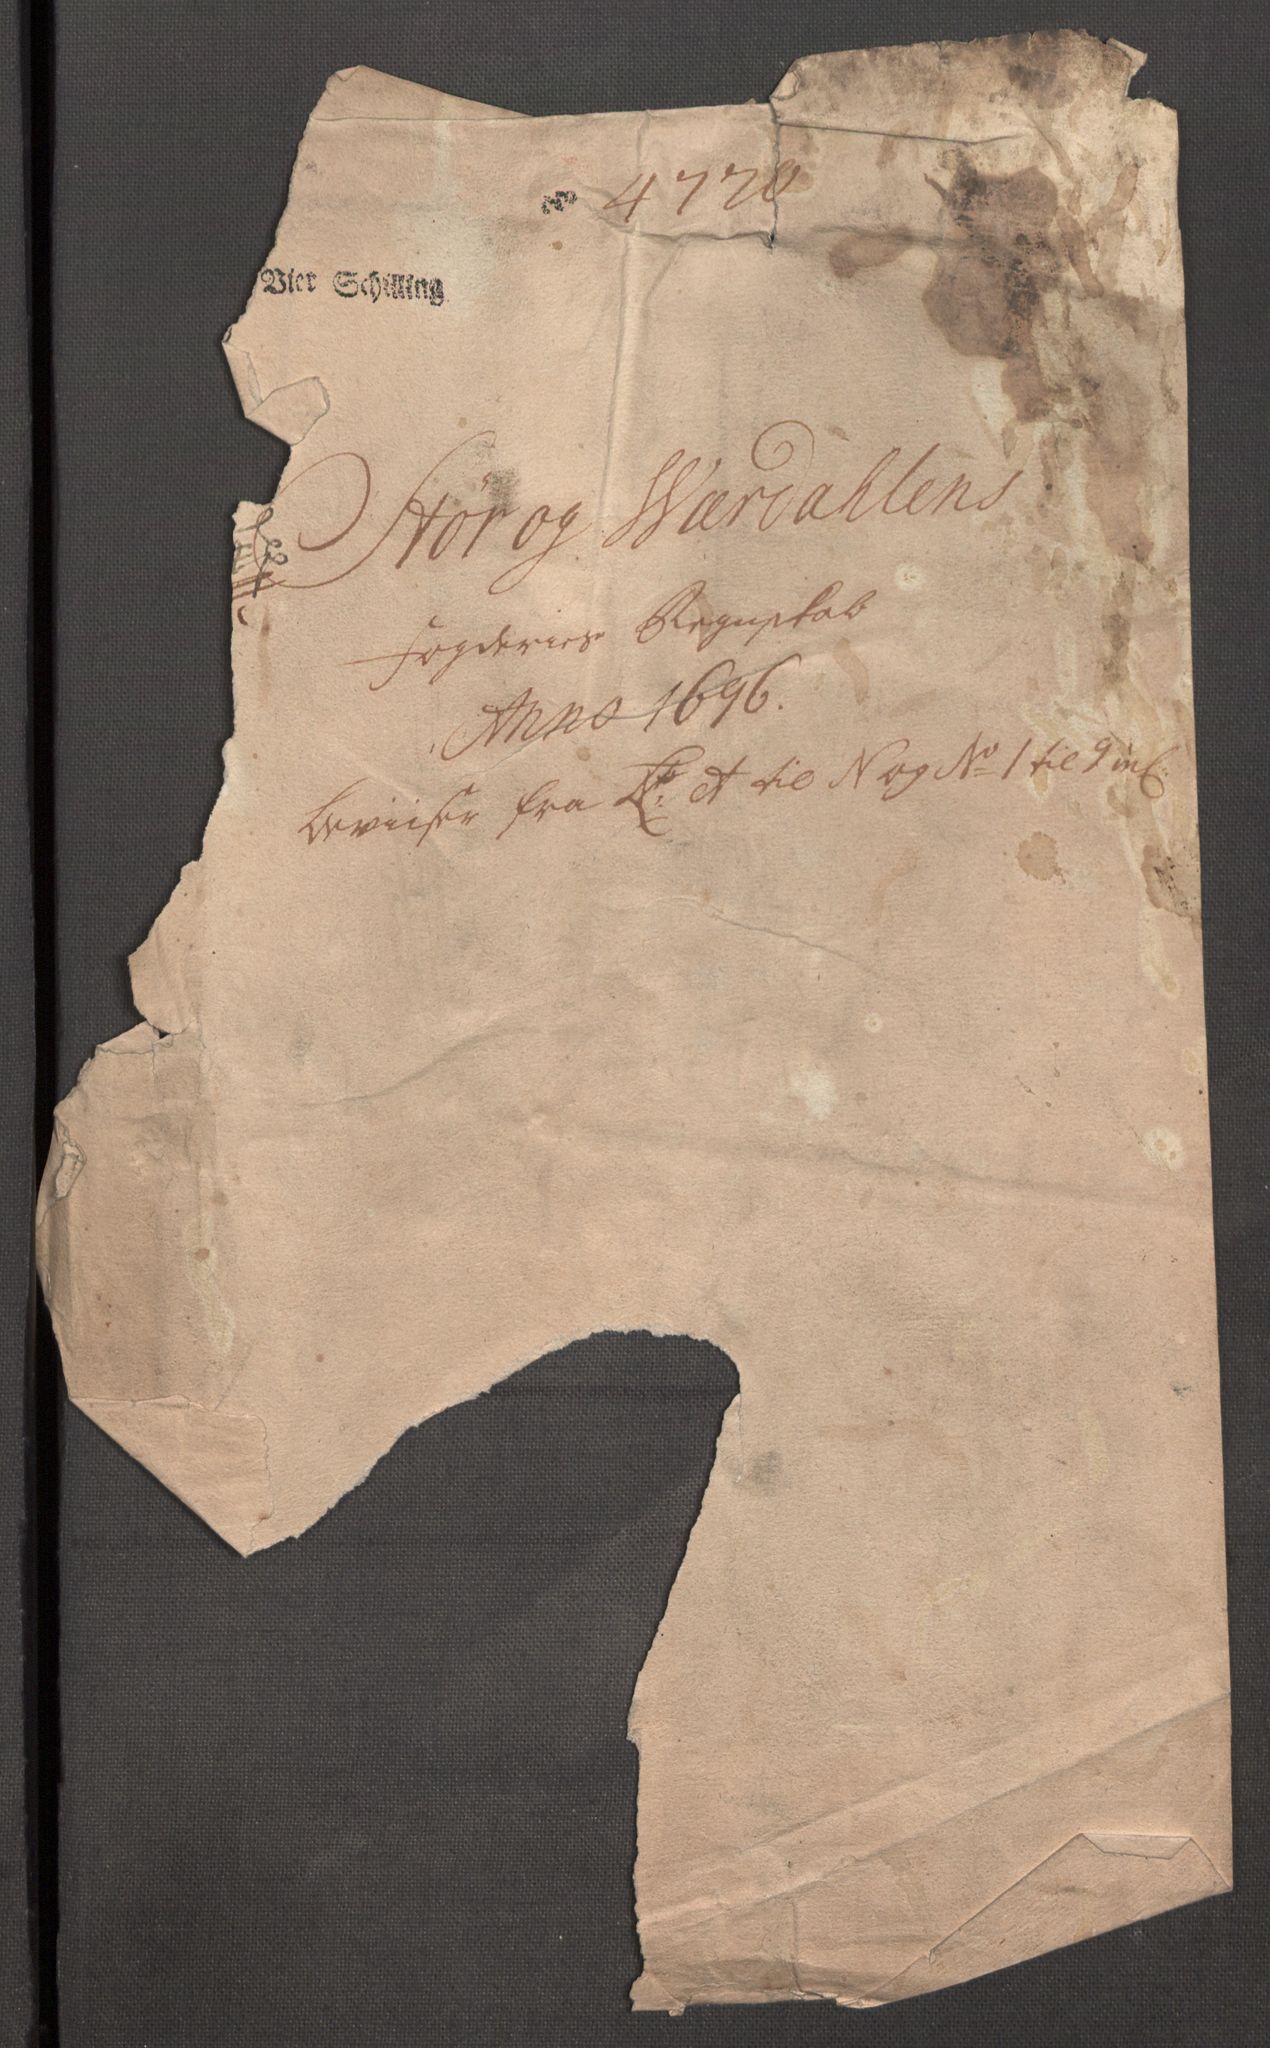 4770
Vier Schilling
Stør og Værdahlens
fogderies Regnskab
Anno 1696.
beviiser fra Lr. A til N og No 1 til 9 incl: